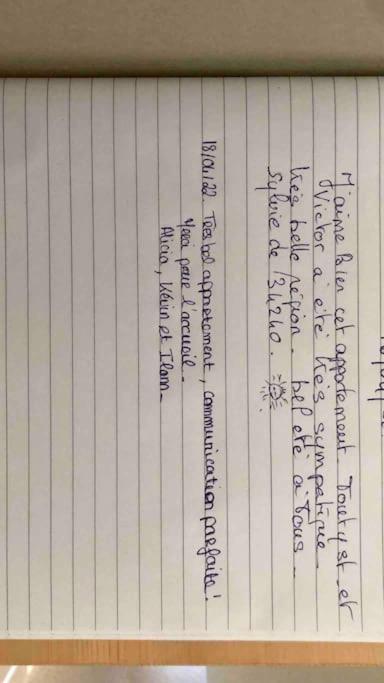 J'aime bien cet appartement. Tout y st et
Victor a été très sympatique.
très belle région. bel eté à Tous.
Sylvie de 34240.
18/04/22. Très bel appartement, communication parfaite!
Merci pour l'accueil.
Alicia, Kévin et Ilann.